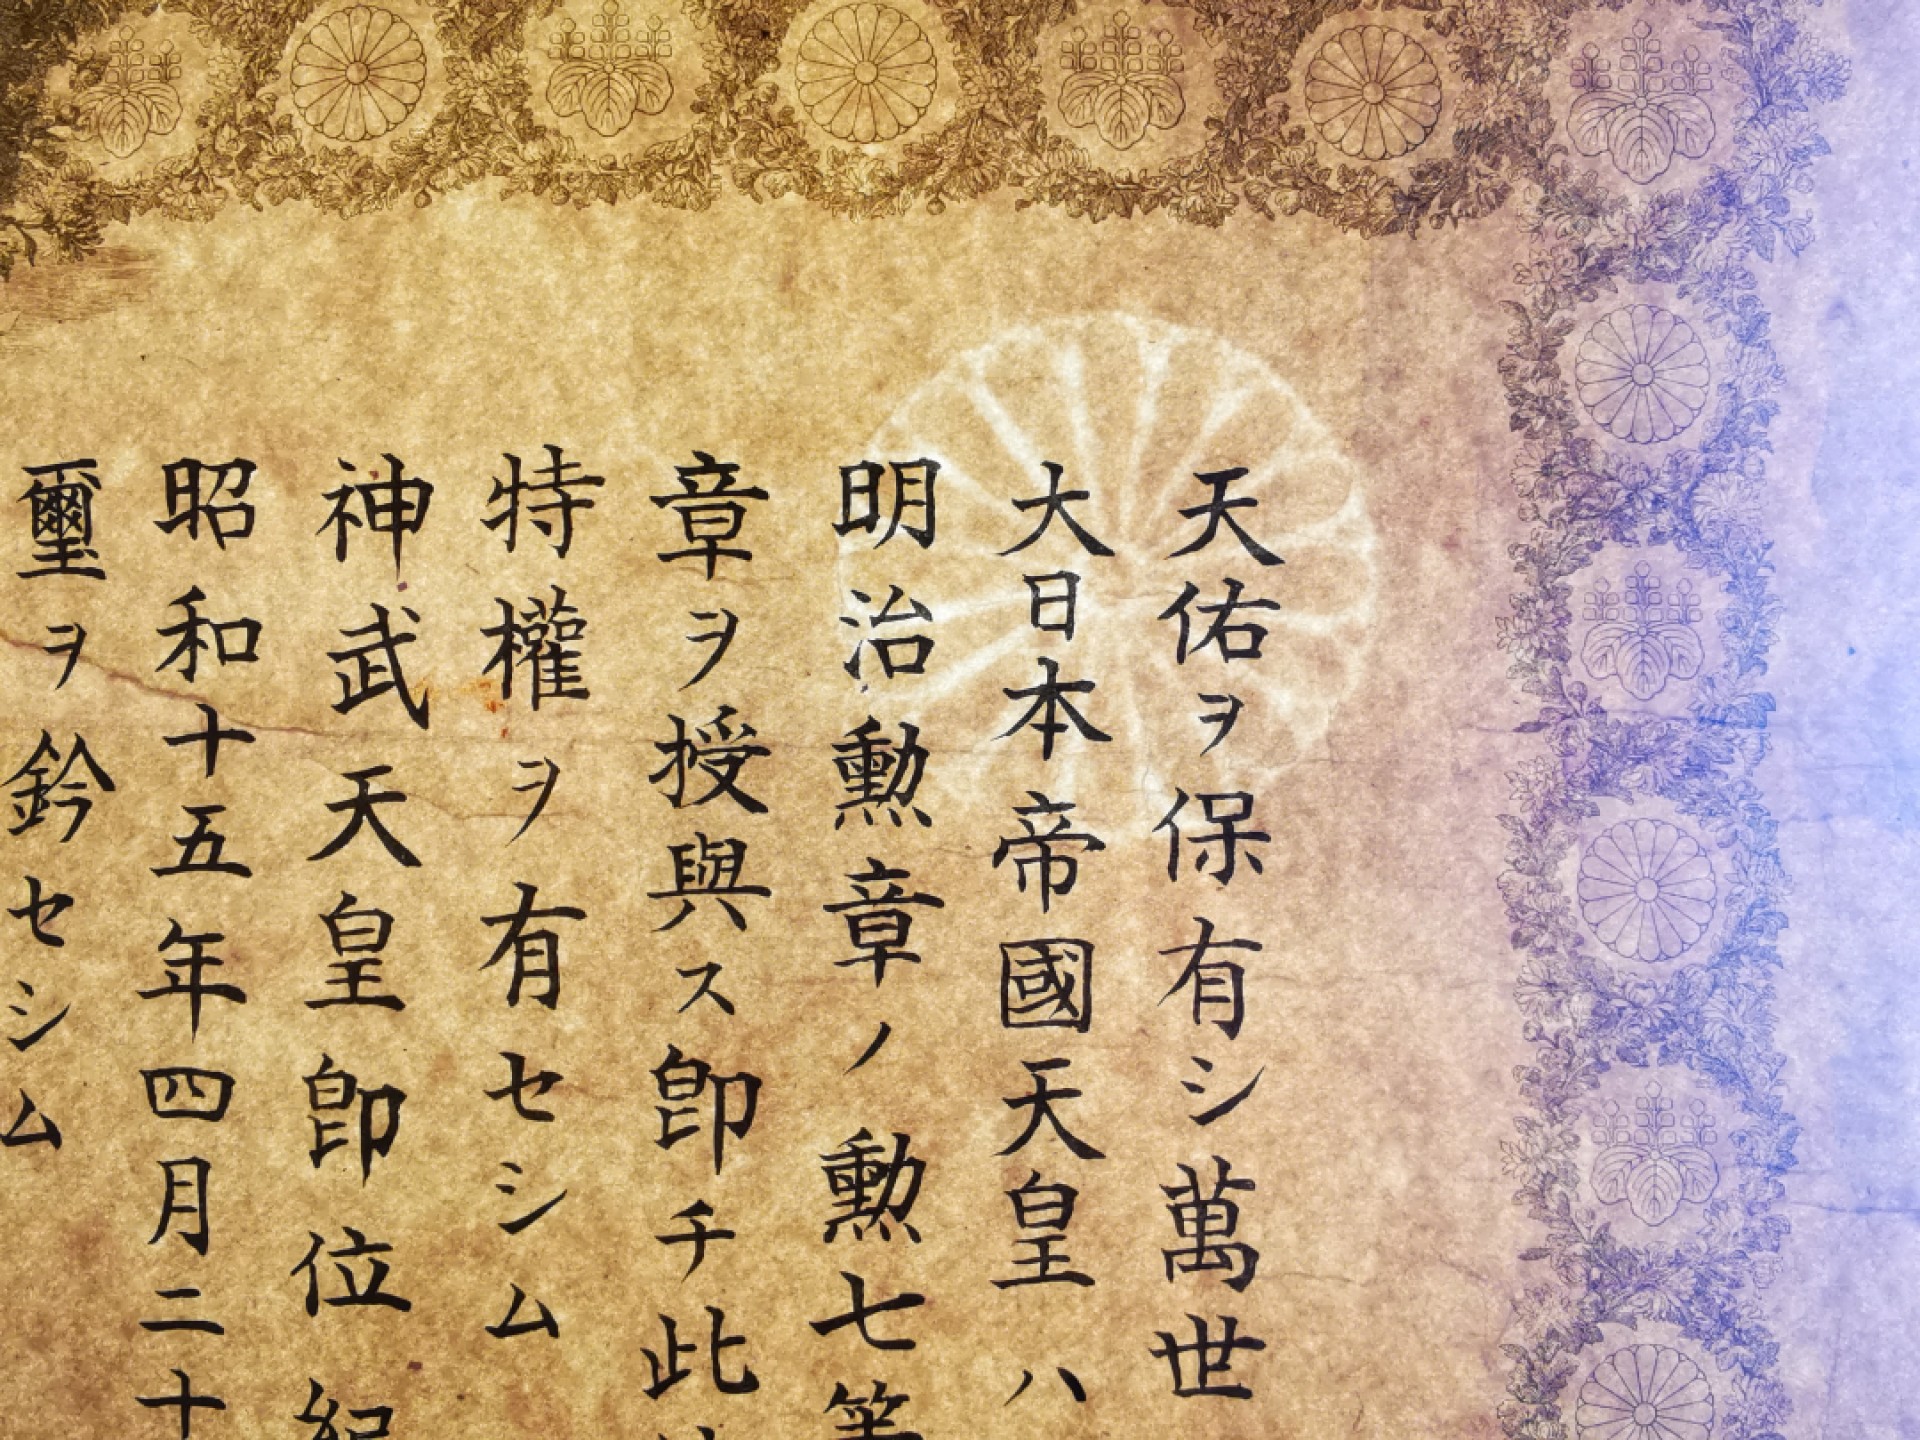 天佑ヲ保有シ萬世
大日本帝國天皇ハ
明治勳章ノ勳七等
章ヲ授與ス卽チ此
特權ヲ有セシム
神武天皇卽位紀
昭和十五年四月二十
璽ヲ鈐セシム